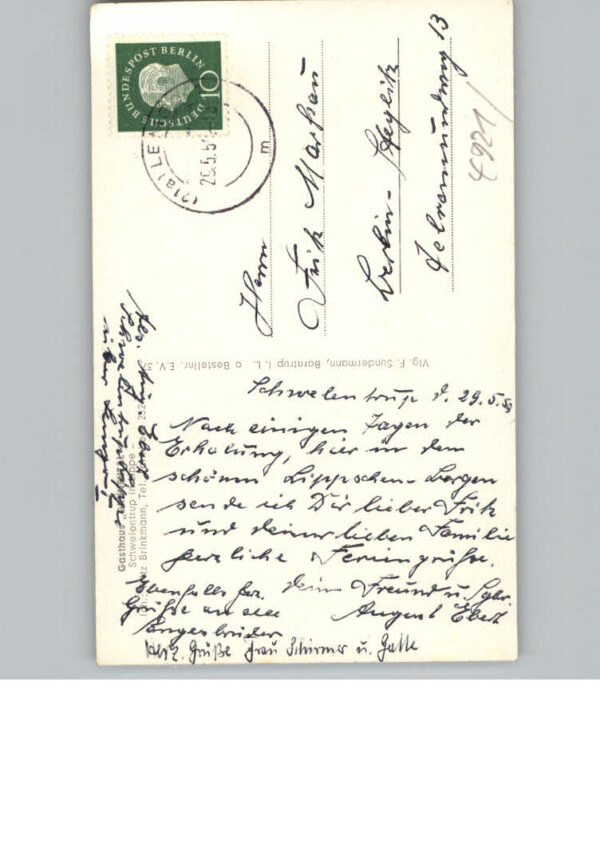 DEUTSCHE BUNDESPOST BERLIN
10
(21a) LEM
29.5.5
m
Herrn
Fritz
Berlin-Steglitz
13
4921/
Vlg. F. Sundermann, Barntrup i. L. o Bestellnr. E.V. 57
Gasthaus
Schwelentrup in Lippe –
Brinkmann, Tel.
Schwelentrup d. 29.5.59
Nach einigen Tagen der
Erholung, hier in den
schönen Lippschen-Bergen
sende ich Dir lieber Fritz
und deiner lieben Familie
herzliche Feriengrüße.
Dein Freund u. Sgbr.
August Ebert
Ebenfalls hz.
Grüße an alle
Sangesbrüder
Herz. Grüße Frau Schirmer u. Gatte